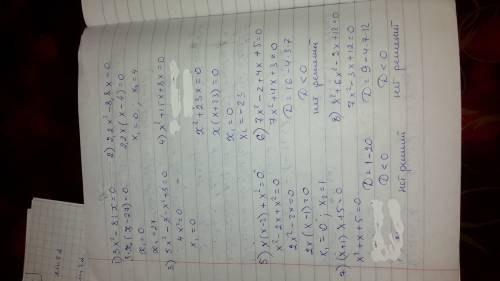 1) 3x² - 81x = 0.
3x (x - 27) = 0.
x₁ = 0
x₂ = 27
2) 2,2x² - 8,8x = 0
2,2x (x - 4) = 0
x₁ = 0; x₂ = 4
3) 5x² - x - x² + x = 0
4x² = 0
x₁ = 0
4) x² + 15x + 8x = 0
x² + 23x = 0
x(x + 23) = 0
x₁ = 0
x₂ = -23
5) x(x - 2) + x² = 0
x² - 2x + x² = 0
2x² - 2x = 0
2x (x - 1) = 0
x₁ = 0; x₂ = 1
6) 7x² - 2 + 4x + 5 = 0
7x² + 4x + 3 = 0
D = 16 - 4·3·7
D < 0
нет решений
7) (x + 1) x + 5 = 0
x² + x + 5 = 0
D = 1 - 20
D < 0
нет решений
8) x² + 6x² - 3x + 12 = 0
7x² - 3x + 12 = 0
D = 9 - 4·7·12
D < 0
нет решений